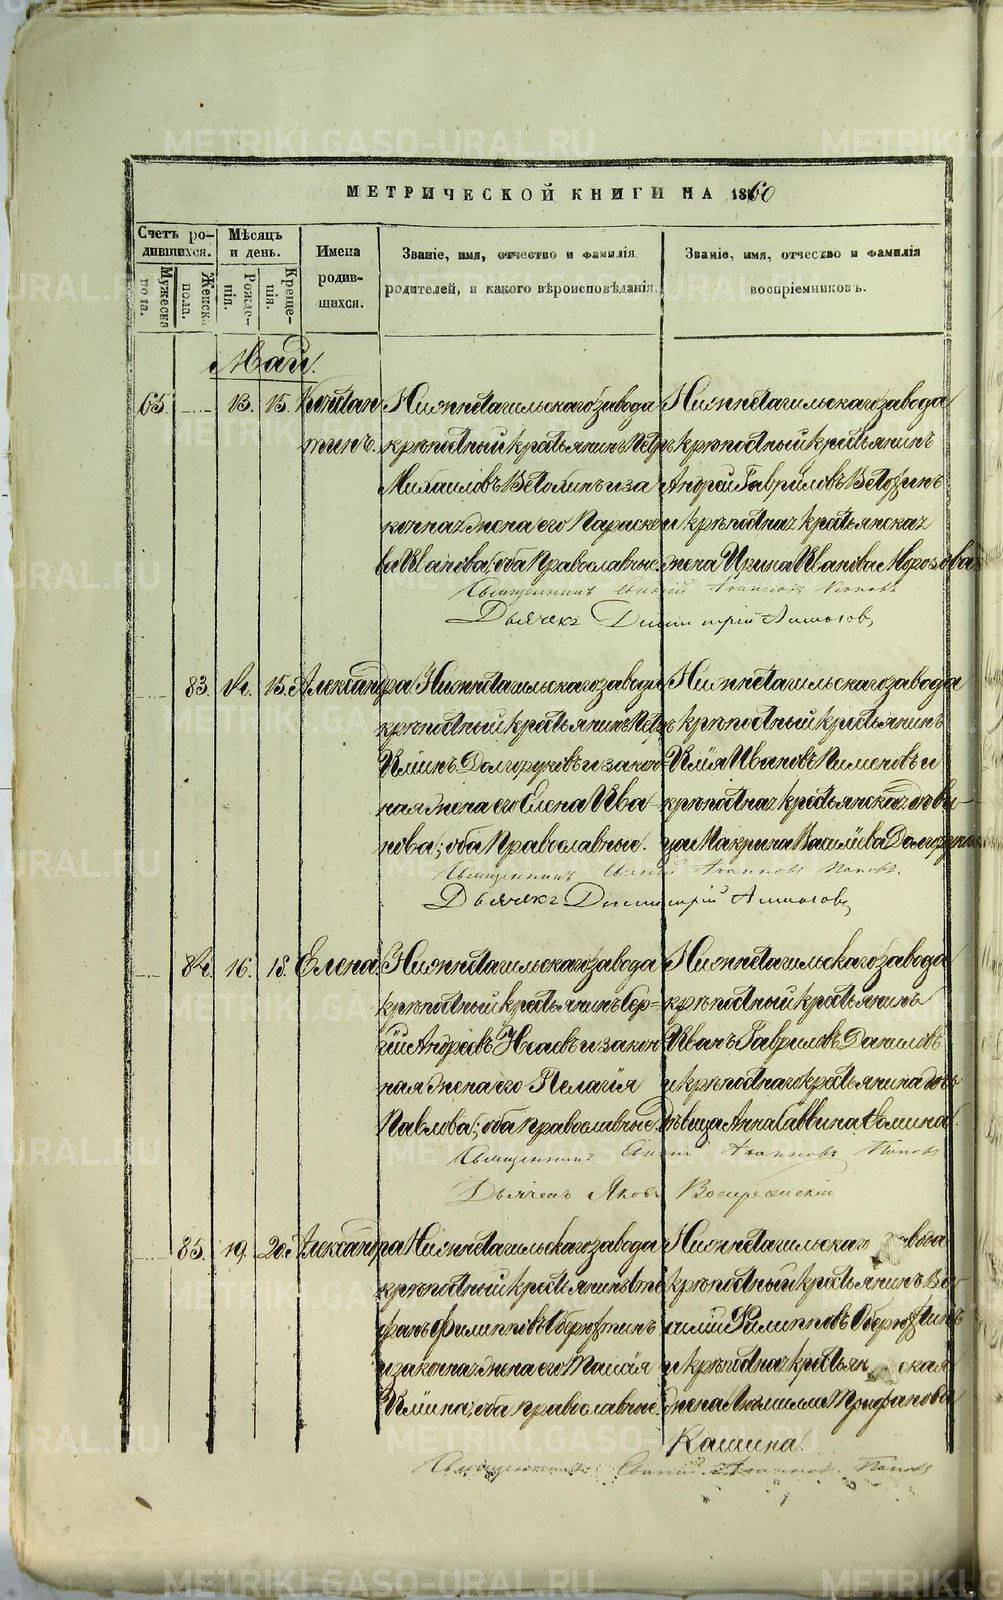 METRIKI.GASO-URAL.RU
МЕТРИЧЕСКОЙ КНИГИ НА 1860
Счетъ родившихся.
Мѣсяцъ и день.
Имена родившихся.
Званіе, имя, отчество и фамилія родителей, и какого вѣроисповѣданія.
Званіе, имя, отчество и фамилія воспріемниковъ.
Мужеска пола.
Женска пола.
Рожденія.
Крещенія.
Май.
65. 13. 15. Констан Нижнетагильскаго завода Нижнетагильскаго завода
тинъ. крѣпостный крестьянинъ Петръ крѣпостный крестьянинъ
Михаиловъ и за Андрей Гавриловъ
конная жена его Параске и крѣпостная крестьянская
ва Иванова; оба Православные. жена Ирина Иванова Морозова
Священникъ Іоанновъ Поповъ
Дьячекъ Димитрій
83. 14. 15. Александра Нижнетагильскаго завода Нижнетагильскаго завода
крѣпостный крестьянинъ Петръ крѣпостный крестьянинъ
Ильинъ Долгоруковъ и закон Илія Ивановъ Пименовъ и
ная жена его Елена Ива крѣпостная крестьянская дѣви
нова; оба Православные. ца Макрина Василіева
Священникъ Іоанновъ Поповъ.
Дьячекъ Димитрій
84. 16. 18. Елена Нижнетагильскаго завода Нижнетагильскаго завода
крѣпостный крестьянинъ Сер= крѣпостный крестьянинъ
гій Андреевъ и закон Иванъ Гавриловъ Даниловъ
ная жена его Пелагія и крѣпостнаго крестьянина дочь
Павлова; оба православные. дѣвица Анна Саввина Фомина.
Священникъ Іоанновъ Поповъ
Дьячекъ Яковъ Воскресенскій
85. 19. 20. Александра Нижнетагильскаго завода Нижнетагильскаго завода
крѣпостный крестьянинъ Сте крѣпостный крестьянинъ Ва
фанъ Филипповъ Оберюхтинъ силій Филипповъ Оберюхтинъ
и законная жена его Таисія и крѣпостная крестьянская
Ильина; оба православные. жена Людмила Трифанова
Кашина.
Священникъ Іоанновъ Поповъ